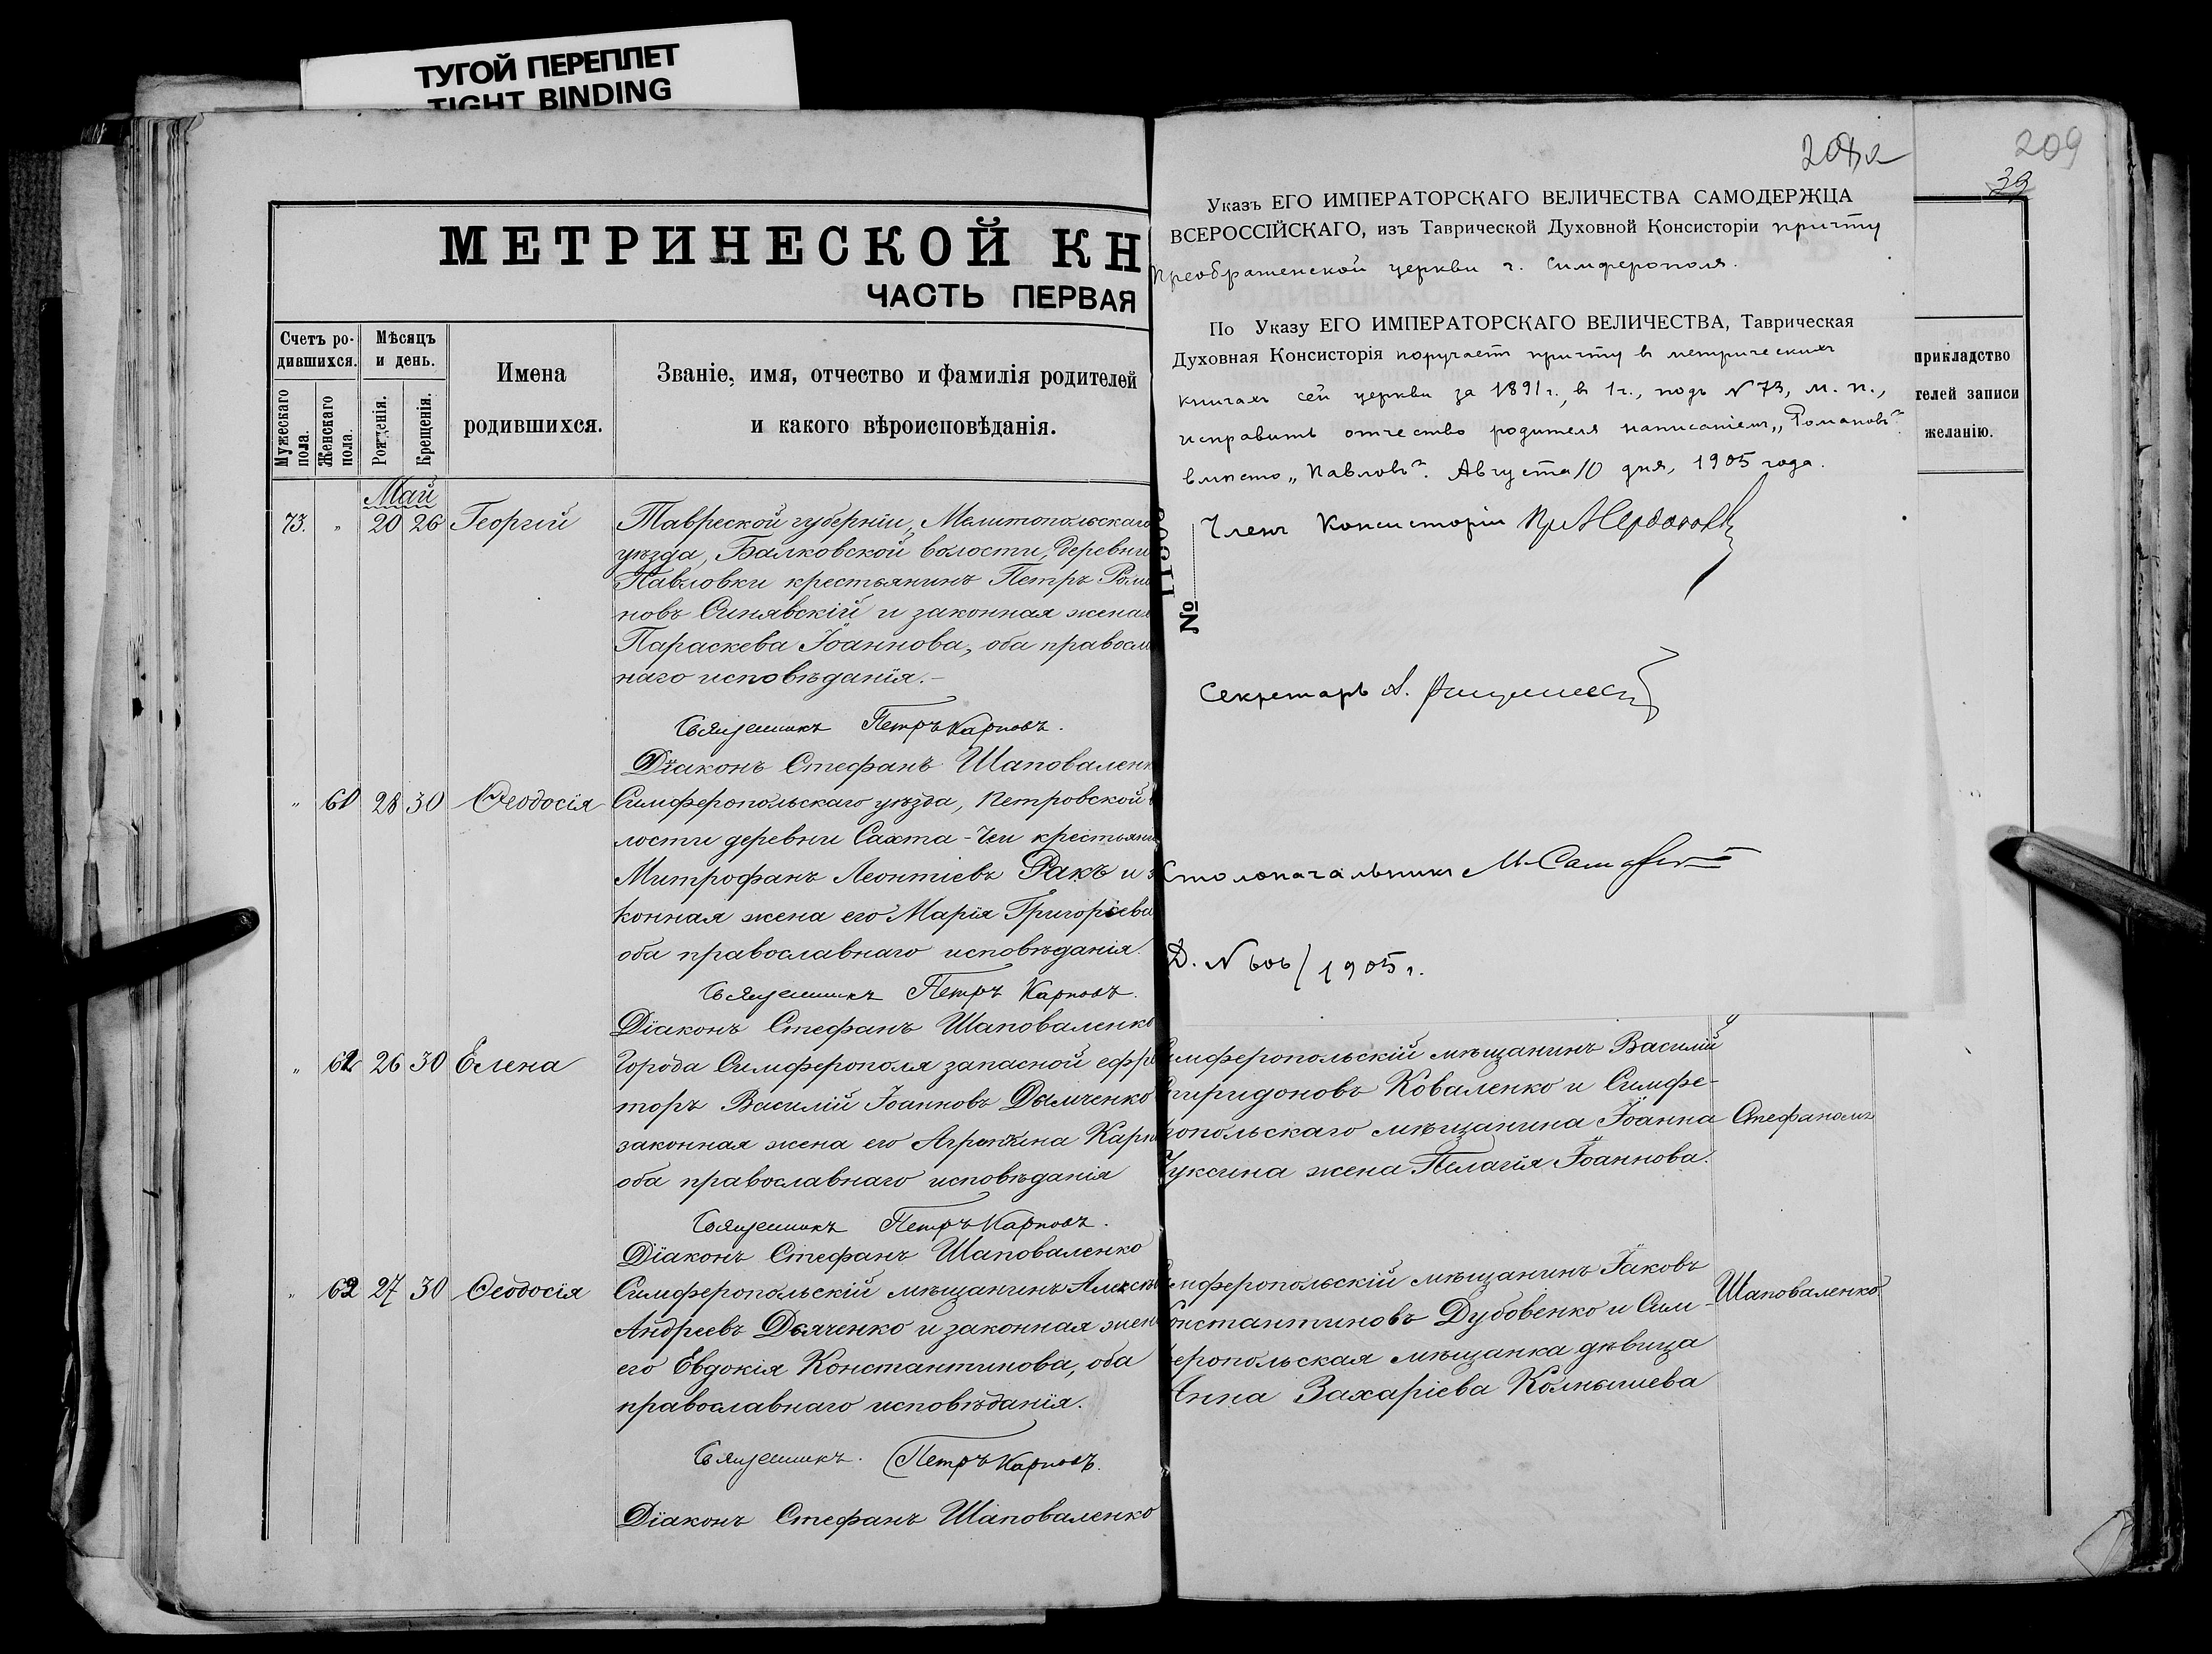 ТУГОЙ ПЕРЕПЛЕТ
TIGHT BINDING
МЕТРИЧЕСКОЙ КН
ЧАСТЬ ПЕРВАЯ
Счетъ ро-
дившихся.
Мужескаго пола.
Женскаго пола.
Мѣсяцъ
и день.
Рожденія.
Крещенія.
Имена
родившихся.
Званіе, имя, отчество и фамилія родителей
и какого вѣроисповѣданія.
Май
73. " 20 26 Георгій
Тавреской губерніи, Мелитопольскаго
уѣзда, Балковской волости, деревни
Павловки крестьянинъ Петръ Рома
новъ Синявскій и законная жена
Параскева Іоаннова, оба правосл
наго исповѣданія.-
Священникъ Петръ Карповъ.
Діаконъ Стефанъ Шаповаленк
" 60 28 30 Ѳеодосія
Симферопольскаго уѣзда, Петровской
лости деревни Сахта-Чеи крестьяни
Митрофанъ Леонтіевъ Ракъ и з
конная жена его Марія Григоріева
оба православнаго исповѣданія.
Священникъ Петръ Карповъ.
Діаконъ Стефанъ Шаповаленко
" 61 26 30 Елена
Города Симферополя запасной ефре
торъ Василій Іоанновъ Дымченко
законная жена его Агрипина Карп
оба православнаго исповѣданія
Священникъ Петръ Карповъ.
Діаконъ Стефанъ Шаповаленко
" 62 27 30 Ѳеодосія
Симферопольскій мѣщанинъ Алексѣ
Андреевъ Дьяченко и законная жен
его Евдокія Константинова, оба
православнаго исповѣданія.
Священникъ. Петръ Карповъ.
Діаконъ Стефанъ Шаповаленко
209
39
Указъ ЕГО ИМПЕРАТОРСКАГО ВЕЛИЧЕСТВА САМОДЕРЖЦА
ВСЕРОССІЙСКАГО, изъ Таврической Духовной Консисторіи причту
Преображенской церкви г. Симферополя.
По Указу ЕГО ИМПЕРАТОРСКАГО ВЕЛИЧЕСТВА, Таврическая
Духовная Консисторія поручаетъ причту въ метрическихъ
книгахъ сей церкви за 1891 г., въ 1 ч., подъ № 73, м. п.,
исправить отчество родителя написаніемъ „Романовъ"
вмѣсто „Павловъ". Августа 10 дня, 1905 года.
Членъ Консисторіи
№ 11908
Секретарь А.
Столоначальникъ М.
Д. № 606/1905 г.
прикладство
телей записи
желанію.
имферопольскій мѣщанинъ Василій
пиридоновъ Коваленко и Симфе-
ропольскаго мѣщанина Іоанна
Чуксина жена Пелагія Іоаннова.
Стефаномъ
имферопольскій мѣщанинъ Іаковъ
онстантиновъ Дубовенко и Сим-
еропольская мѣщанка дѣвица
Анна Захаріева Колнышева
Шаповаленко